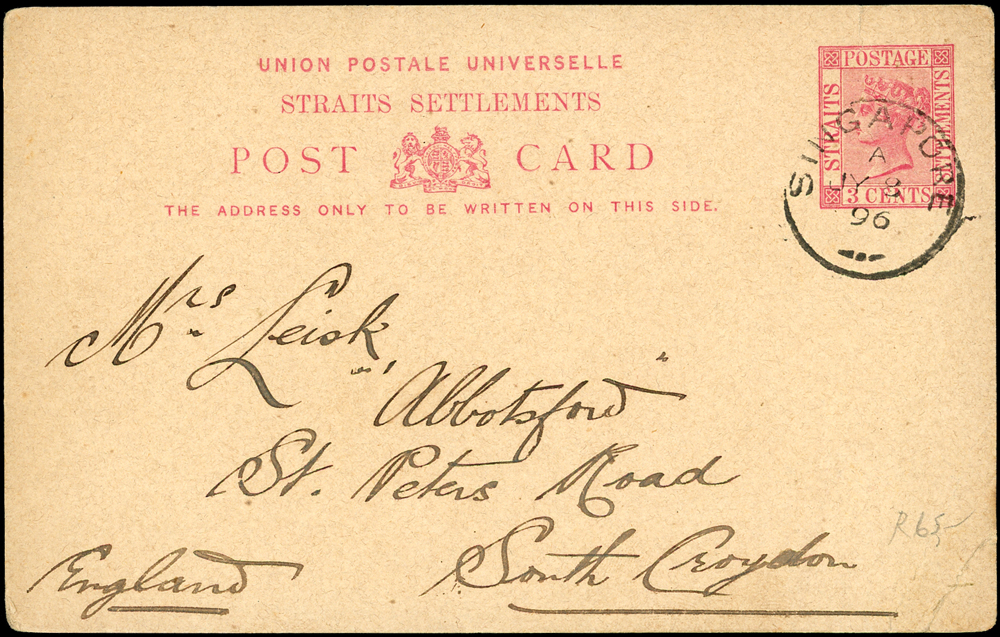 UNION POSTALE UNIVERSELLE
STRAITS SETTLEMENTS
POST CARD
THE ADDRESS ONLY TO BE WRITTEN ON THIS SIDE.
POSTAGE
STRAITS
SETTLEMENTS
3 CENTS
SINGAPORE
A
JY 8
96
Mrs Leisk,
"Abbotsford"
St. Peters Road
South Croydon
England
R65-